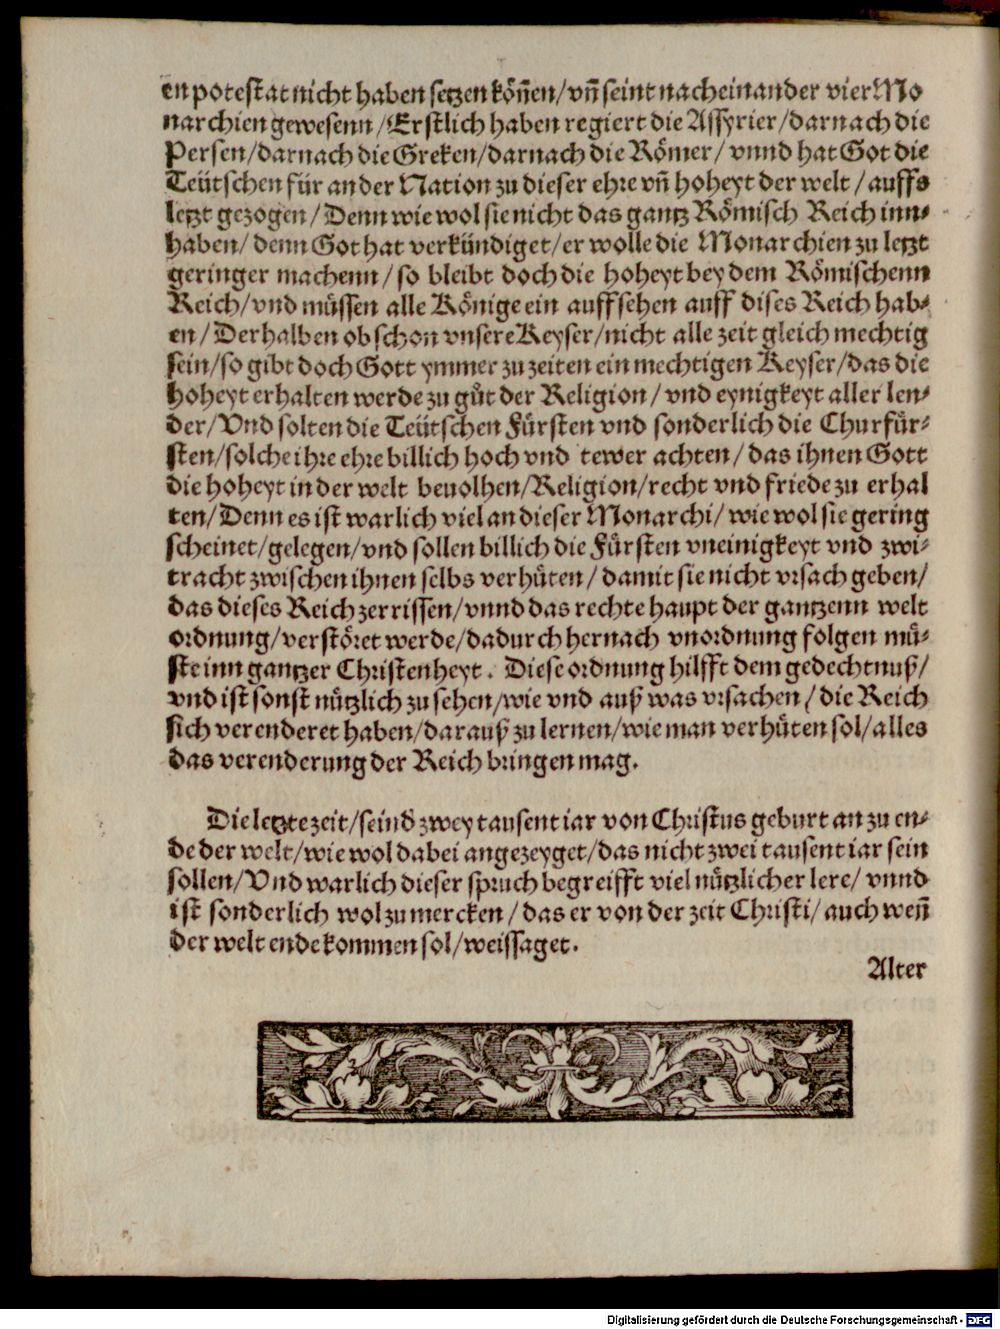 en potestat nicht haben setzen köñen/vñ seint nach einander vier Mo
narchien gewesenn/Erstlich haben regiert die Assyrier/darnach die
Persen/darnach die Greken/darnach die Römer/ vnnd hat Got die
Teütschen für ander Nation zu dieser ehre vñ hoheyt der welt/auffs
letzt gezogen/Denn wie wol sie nicht das gantz Römisch Reich inn⸗
haben/ denn Got hat verkündiget/er wolle die Monarchien zu letzt
geringer machenn/so bleibt doch die hoheyt bey dem Römischenn
Reich/vnd müssen alle Könige ein auffsehen auff dises Reich hab⸗
en/Derhalben ob schon vnsere Keyser/nicht alle zeit gleich mechtig
sein/so gibt doch Gott ymmer zu zeiten ein mechtigen Keyser/das die
hoheyt erhalten werde zu gůt der Religion/ vnd eynigkeyt aller len⸗
der/Vnd solten die Teütschen Fürsten vnd sonderlich die Churfür⸗
sten/solche ihre ehre billich hoch vnd tewer achten/das ihnen Gott
die hoheyt in der welt beuolhen/Religion/recht vnd friede zu erhal
ten/Denn es ist warlich viel an dieser Monarchi/wie wol sie gering
scheinet/gelegen/vnd sollen billich die Fürsten vneinigkeyt vnd zwi⸗
tracht zwischen ihnen selbs verhüten/damit sie nicht vrsach geben/
das dieses Reich zerrissen/vnnd das rechte haupt der gantzenn welt
ordnung/verstöret werde/dadurch hernach vnordnung folgen mü⸗
ste inn gantzer Christenheyt. Diese ordnung hilfft dem gedechtnuß/
vnd ist sonst nützlich zu sehen/wie vnd auß was vrsachen/die Reich
sich verenderet haben/darauß zu lernen/wie man verhüten sol/alles
das verenderung der Reich bringen mag.

Die letzte zeit/seind zwey tausent iar von Christus geburt an zu en⸗
de der welt/wie wol dabei angezeyget/das nicht zwei tausent iar sein
sollen/Vnd warlich dieser spruch begreifft viel nützlicher lere/ vnnd
ist sonderlich wol zu mercken/das er von der zeit Christi/auch weñ
der welt ende kommen sol/weissaget.
Alter

Digitalisierung gefördert durch die Deutsche Forschungsgemeinschaft - DFG